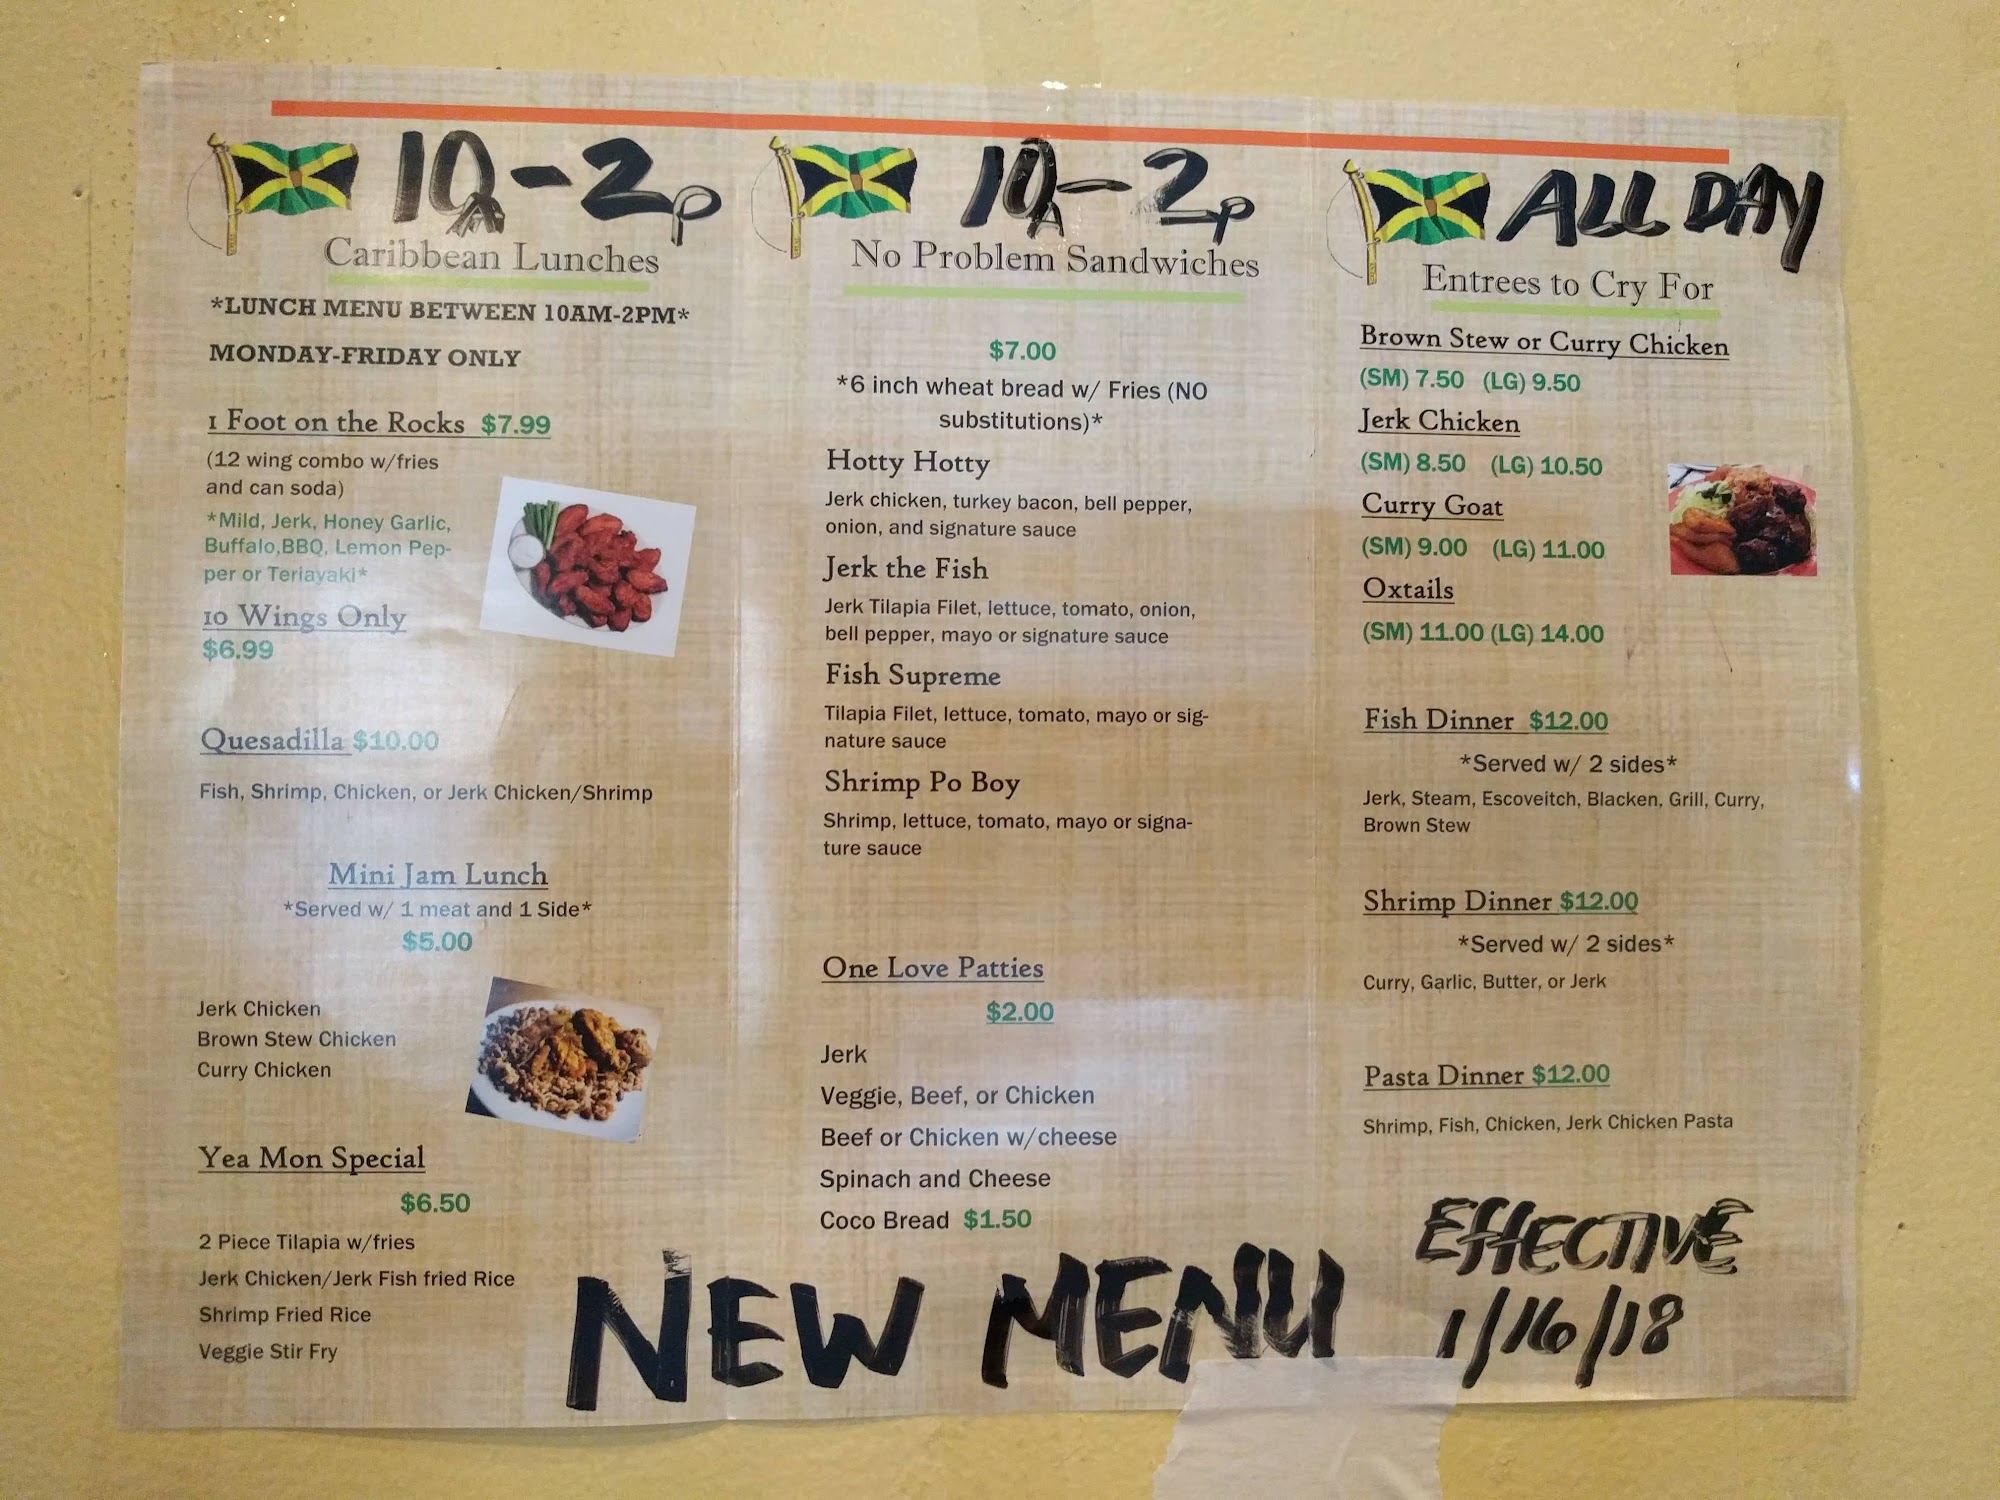 10A-2P
Caribbean Lunches
*LUNCH MENU BETWEEN 10AM-2PM*
MONDAY-FRIDAY ONLY
1 Foot on the Rocks $7.99
(12 wing combo w/fries
and can soda)
*Mild, Jerk, Honey Garlic,
Buffalo,BBQ, Lemon Pep-
per or Teriayaki*
10 Wings Only
$6.99
Quesadilla $10.00
Fish, Shrimp, Chicken, or Jerk Chicken/Shrimp
Mini Jam Lunch
*Served w/ 1 meat and 1 Side*
$5.00
Jerk Chicken
Brown Stew Chicken
Curry Chicken
Yea Mon Special
$6.50
2 Piece Tilapia w/fries
Jerk Chicken/Jerk Fish fried Rice
Shrimp Fried Rice
Veggie Stir Fry
10A-2P
No Problem Sandwiches
$7.00
*6 inch wheat bread w/ Fries (NO
substitutions)*
Hotty Hotty
Jerk chicken, turkey bacon, bell pepper,
onion, and signature sauce
Jerk the Fish
Jerk Tilapia Filet, lettuce, tomato, onion,
bell pepper, mayo or signature sauce
Fish Supreme
Tilapia Filet, lettuce, tomato, mayo or sig-
nature sauce
Shrimp Po Boy
Shrimp, lettuce, tomato, mayo or signa-
ture sauce
One Love Patties
$2.00
Jerk
Veggie, Beef, or Chicken
Beef or Chicken w/cheese
Spinach and Cheese
Coco Bread $1.50
ALL DAY
Entrees to Cry For
Brown Stew or Curry Chicken
(SM) 7.50 (LG) 9.50
Jerk Chicken
(SM) 8.50 (LG) 10.50
Curry Goat
(SM) 9.00 (LG) 11.00
Oxtails
(SM) 11.00 (LG) 14.00
Fish Dinner $12.00
*Served w/ 2 sides*
Jerk, Steam, Escoveitch, Blacken, Grill, Curry,
Brown Stew
Shrimp Dinner $12.00
*Served w/ 2 sides*
Curry, Garlic, Butter, or Jerk
Pasta Dinner $12.00
Shrimp, Fish, Chicken, Jerk Chicken Pasta
NEW MENU
EFFECTIVE
1/16/18